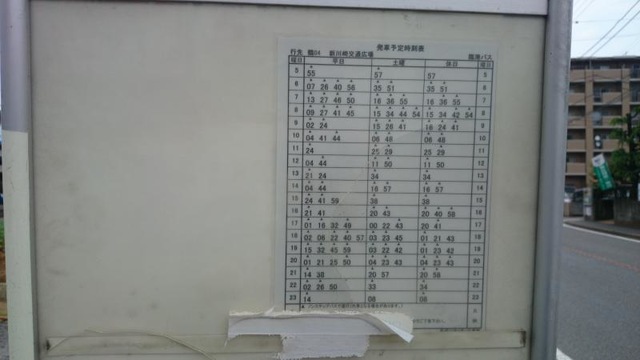 発車予定時刻表
行先 鶴04 新川崎交通広場 臨港バス
曜日 平日 土曜 休日 曜日
5 55 57 57 5
6 07 26 40 56 35 51 35 51 6
7 13 27 46 50 16 36 55 16 36 55 7
8 09 27 41 45 15 34 44 54 15 34 42 54 8
9 02 24 15 28 41 16 24 41 9
10 04 41 44 06 48 06 48 10
11 24 25 29 25 29 11
12 04 44 11 50 11 50 12
13 21 24 34 34 13
14 04 44 16 57 16 57 14
15 24 41 59 38 38 15
16 21 41 20 43 20 40 58 16
17 01 16 32 49 00 22 43 20 41 17
18 02 06 22 40 57 03 23 45 01 21 43 18
19 15 32 45 59 02 22 42 01 23 42 19
20 01 21 25 50 04 23 43 04 23 43 20
21 14 38 20 57 20 58 21
22 02 26 50 33 34 22
23 14 08 08 23